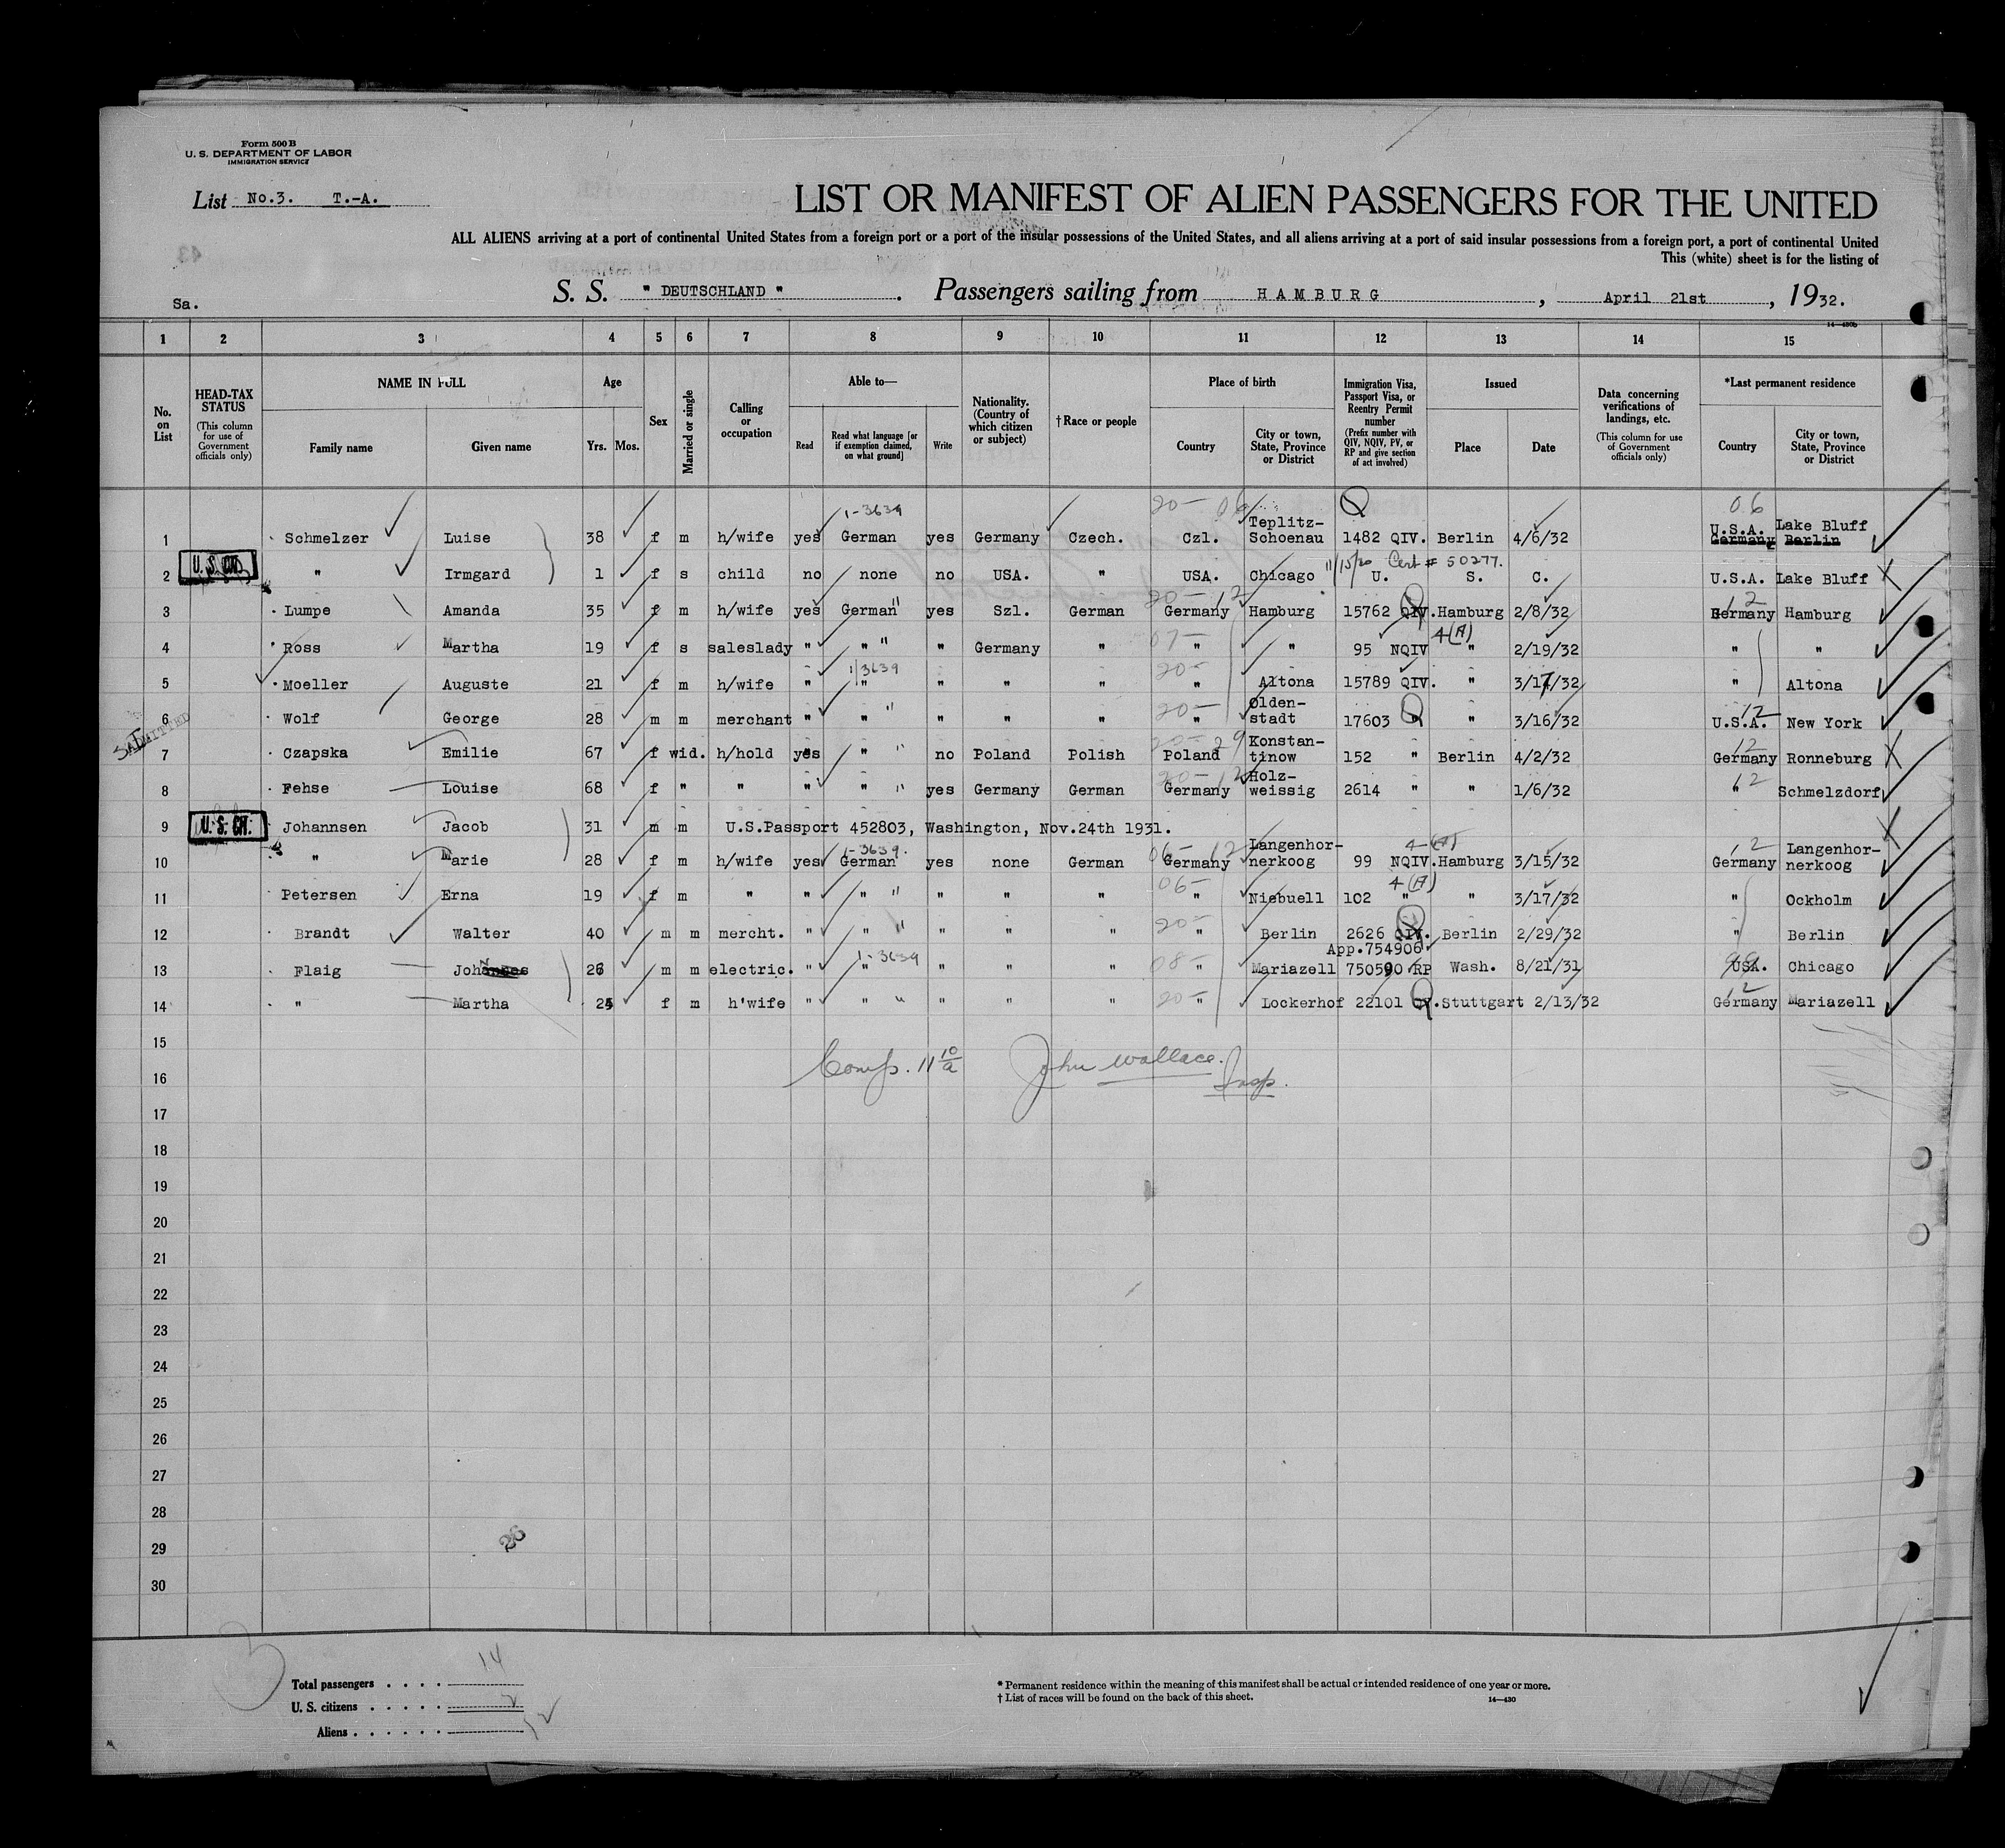 Form 500 B
U. S. DEPARTMENT OF LABOR
IMMIGRATION SERVICE
List No.3. T.-A.
LIST OR MANIFEST OF ALIEN PASSENGERS FOR THE UNITED
ALL ALIENS arriving at a port of continental United States from a foreign port or a port of the insular possessions of the United States, and all aliens arriving at a port of said insular possessions from a foreign port, a port of continental United
This (white) sheet is for the listing of
Sa. S. S. " DEUTSCHLAND " . Passengers sailing from HAMBURG , April 21st , 1932.
14—430b
1 2 3 4 5 6 7 8 9 10 11 12 13 14 15
No. on List
HEAD-TAX STATUS (This column for use of Government officials only)
NAME IN FULL Family name Given name
Age Yrs. Mos.
Sex
Married or single
Calling or occupation
Able to— Read Read what language [or if exemption claimed, on what ground] Write
Nationality. (Country of which citizen or subject)
†Race or people
Place of birth Country City or town, State, Province or District
Immigration Visa, Passport Visa, or Reentry Permit number (Prefix number with QIV, NQIV, PV, or RP and give section of act involved)
Issued Place Date
Data concerning verifications of landings, etc. (This column for use of Government officials only)
*Last permanent residence Country City or town, State, Province or District
1-3639 20- 06 Q 06
1 Schmelzer Luise 38 f m h/wife yes German yes Germany Czech. Czl. Teplitz-Schoenau 1482 QIV. Berlin 4/6/32 U.S.A. Germany Lake Bluff Berlin
U.S. CIT.
11/15/30 Cert # 50277.
2 " Irmgard 1 f s child no none no USA. " USA. Chicago U. S. C. U.S.A. Lake Bluff
20- 12 12
3 Lumpe Amanda 35 f m h/wife yes German " yes Szl. German Germany Hamburg 15762 QIV. Hamburg 2/8/32 Germany Hamburg
07- 4(A)
4 Ross Martha 19 f s saleslady " " " " Germany " " " 95 NQIV " 2/19/32 " "
1/3639 20-
5 Moeller Auguste 21 f m h/wife " " " " " " Altona 15789 QIV. " 3/17/32 " Altona
20- 12
6 Wolf George 28 m m merchant " " " " " " " Oldenstadt 17603 " " 3/16/32 U.S.A. New York
ADMITTED
20- 29 12
7 Czapska Emilie 67 f wid. h/hold yes " " no Poland Polish Poland Konstan-tinow 152 " Berlin 4/2/32 Germany Ronneburg
20- 12 12
8 Fehse Louise 68 f " " " " " yes Germany German Germany Holz-weissig 2614 " " 1/6/32 " Schmelzdorf
U.S. CIT.
9 Johannsen Jacob 31 m m U.S.Passport 452803, Washington, Nov.24th 1931.
1-3639. 06- 12 4-(A) 12
10 " Marie 28 f m h/wife yes German yes none German Germany Langenhor-nerkoog 99 NQIV. Hamburg 3/15/32 Germany Langenhor-nerkoog
06- 4(A)
11 Petersen Erna 19 f m " " " " " " " " Niebuell 102 " " 3/17/32 " Ockholm
20-
12 Brandt Walter 40 m m mercht. " " " " " " " Berlin 2626 QIV. Berlin 2/29/32 " Berlin
1-3639 08- App.754906 99
13 Flaig Johannes 26 m m electric. " " " " " " Mariazell 750590 RP Wash. 8/21/31 USA. Chicago
20- 12
14 " Martha 25 f m h'wife " " " " " " " Lockerhof 22101 Q. Stuttgart 2/13/32 Germany Mariazell
15
Comp. 11 10/a John Wallace. Insp.
16
17
18
19
20
21
22
23
24
25
26
27
28
26
29
30
3
Total passengers . . . . 14
U. S. citizens . . . . . 2
Aliens . . . . . . 12
* Permanent residence within the meaning of this manifest shall be actual or intended residence of one year or more.
† List of races will be found on the back of this sheet. 14—430